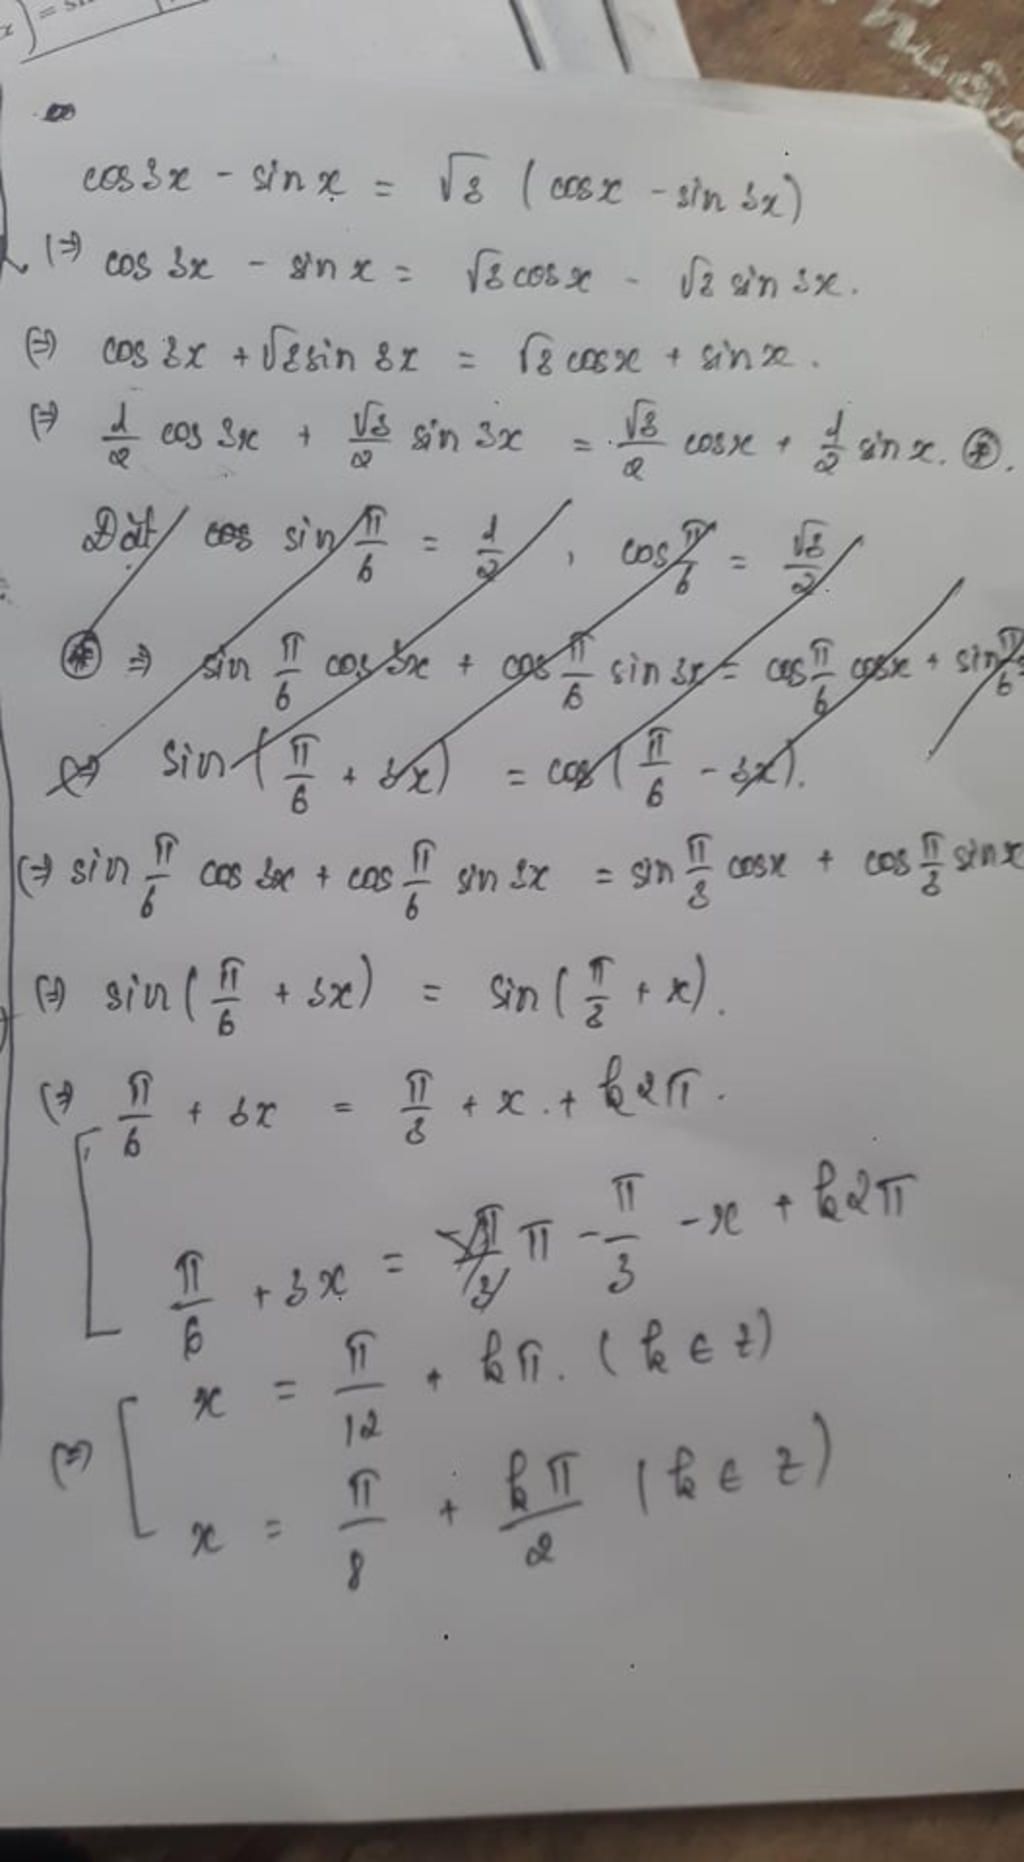 cos3x - sinx = √3 (cosx - sin3x)
(=) cos 3x - sin x = √3 cosx - √3 sin 3x.
(=) cos 3x + √3 sin 3x = √3 cosx + sinx.
(=) 1/2 cos 3x + √3/2 sin 3x = √3/2 cosx + 1/2 sin x. (*).
Đặt cos sin π/6 = 1/2, cos π/6 = √3/2.
(*) => sin π/6 cos 3x + cos π/6 sin 3x = cos π/6 cosx + sin π/6
(=) sin(π/6 + 3x) = cos(π/6 - 3x).
(=) sin π/6 cos 3x + cos π/6 sin 3x = sin π/3 cosx + cos π/3 sinx
(=) sin(π/6 + 3x) = sin(π/3 + x).
(=) [ π/6 + 3x = π/3 + x + k2π.
π/6 + 3x = π - π/3 - x + k2π
(=) [ x = π/12 + kπ. (k ∈ z)
x = π/8 + kπ/2 (k ∈ z)